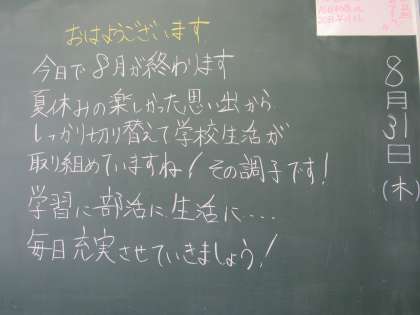 おはようございます
今日で8月が終わります
夏休みの楽しかった思い出から
しっかり切り替えて学校生活が
取り組めていますね！その調子です！
学習に部活に生活に…
毎日充実させていきましょう！
8月31日(木)